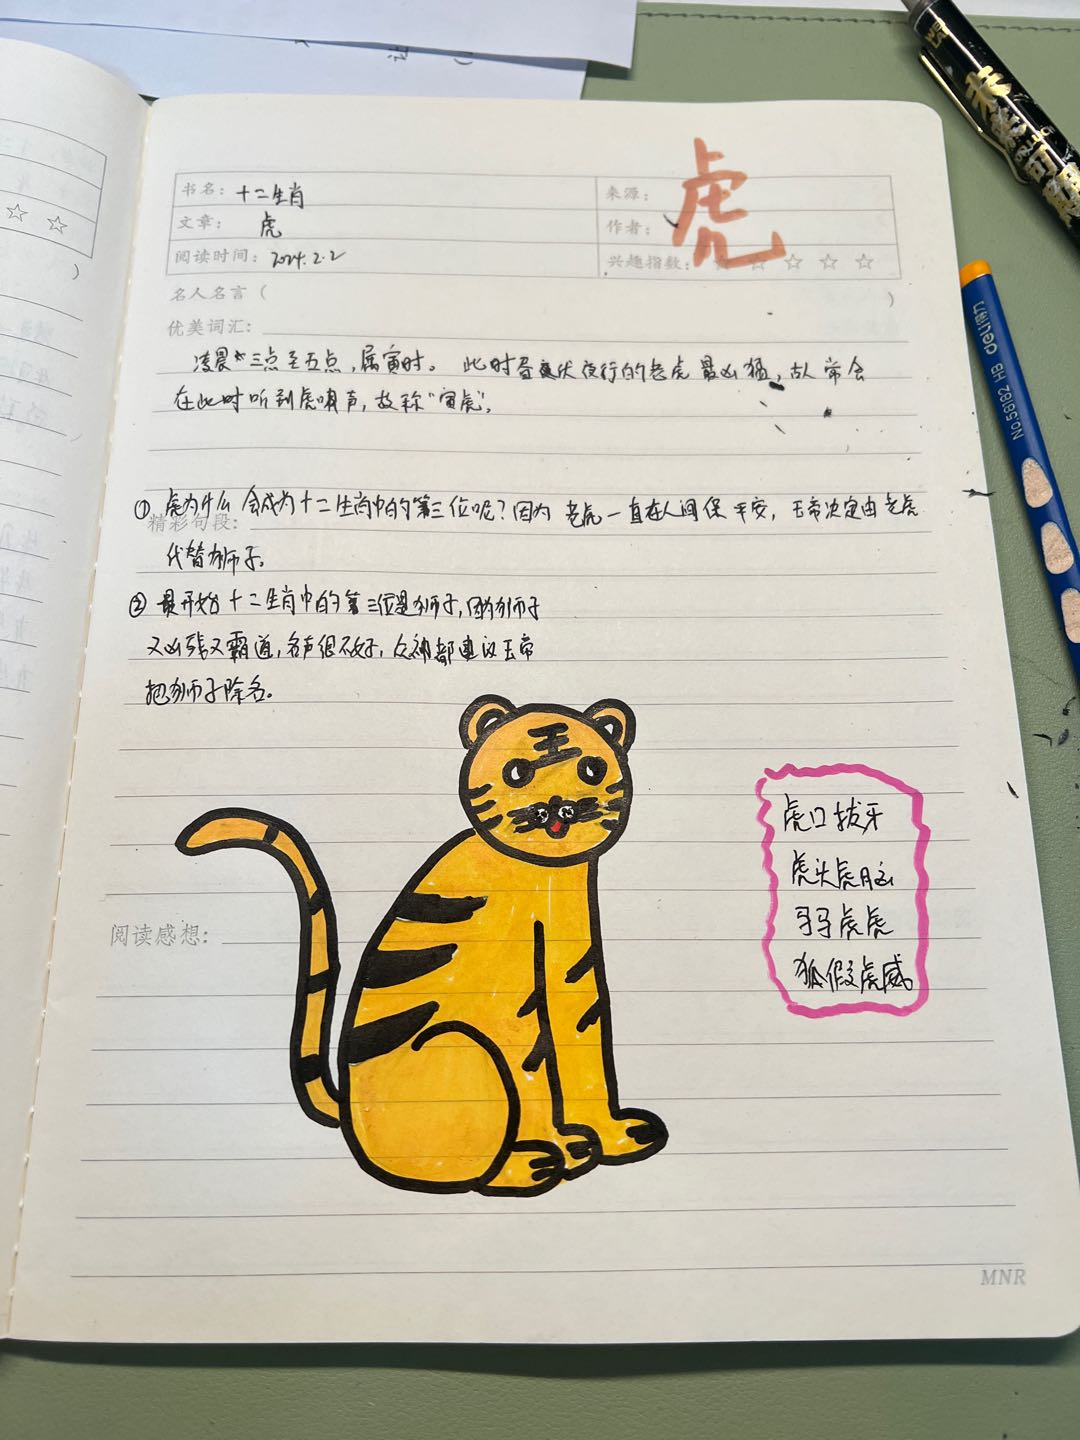 书名： 十二生肖
来源：
虎
文章： 虎
作者：
阅读时间： 2024.2.2
兴趣指数： ☆ ☆ ☆ ☆ ☆
名人名言（ ）
优美词汇：
凌晨 三点至五点，属寅时。 此时昼伏夜行的老虎最凶猛，古人常会
在此时听到虎啸声，故称“寅虎”。
① 虎为什么会成为十二生肖中的第三位呢？因为老虎一直在人间保平安，玉帝决定由老虎
精彩句段：
代替狮子。
② 最开始十二生肖中的第三位是狮子，因为狮子
又凶残又霸道，名声很不好，众神都建议玉帝
把狮子除名。
王
虎口拔牙
虎头虎脑
马马虎虎
狐假虎威
阅读感想：
MNR
deli得力
No.58182 HB